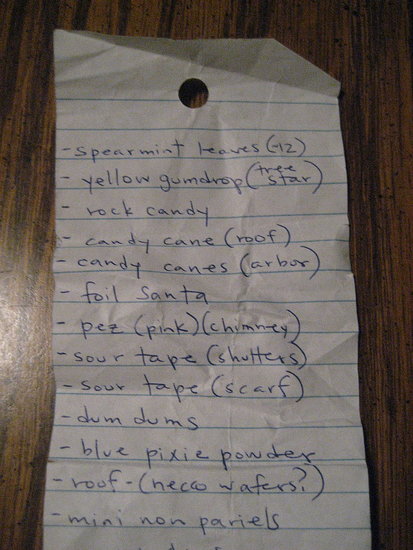 - spearmint leaves (~12)
- yellow gumdrop (tree star)
- rock candy
- candy cane (roof)
- candy canes (arbor)
- foil santa
- pez (pink) (chimney)
- sour tape (shutters)
- sour tape (scarf)
- dum dums
- blue pixie powder
- roof - (necco wafers?)
- mini non pariels